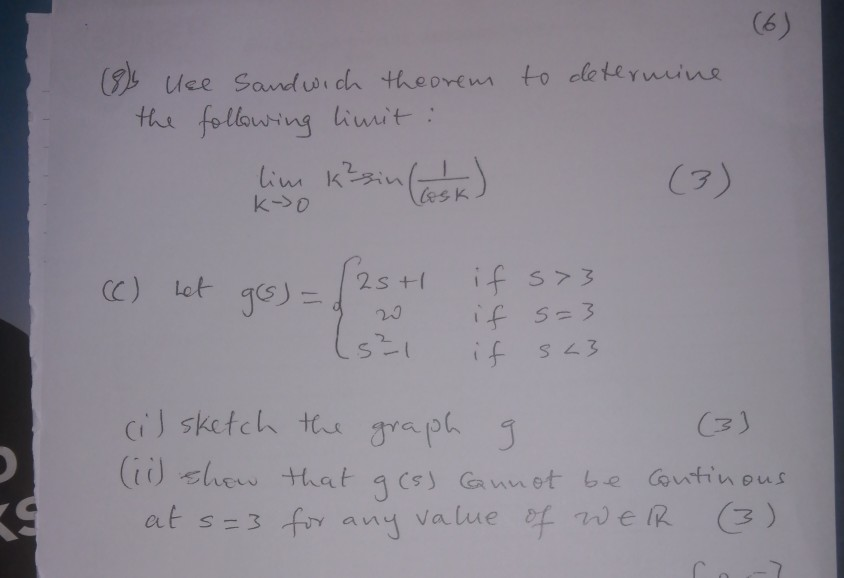 (6)
(8)b Use Sandwich theorem to determine
the following limit :
lim K² sin(1/cos K) (3)
K→0
(c) Let g(s) = { 2s +1 if s > 3
w if s = 3
s²-1 if s < 3
(i) sketch the graph g (3)
(ii) show that g(s) cannot be continous
at s = 3 for any value of w ∈ ℝ (3)